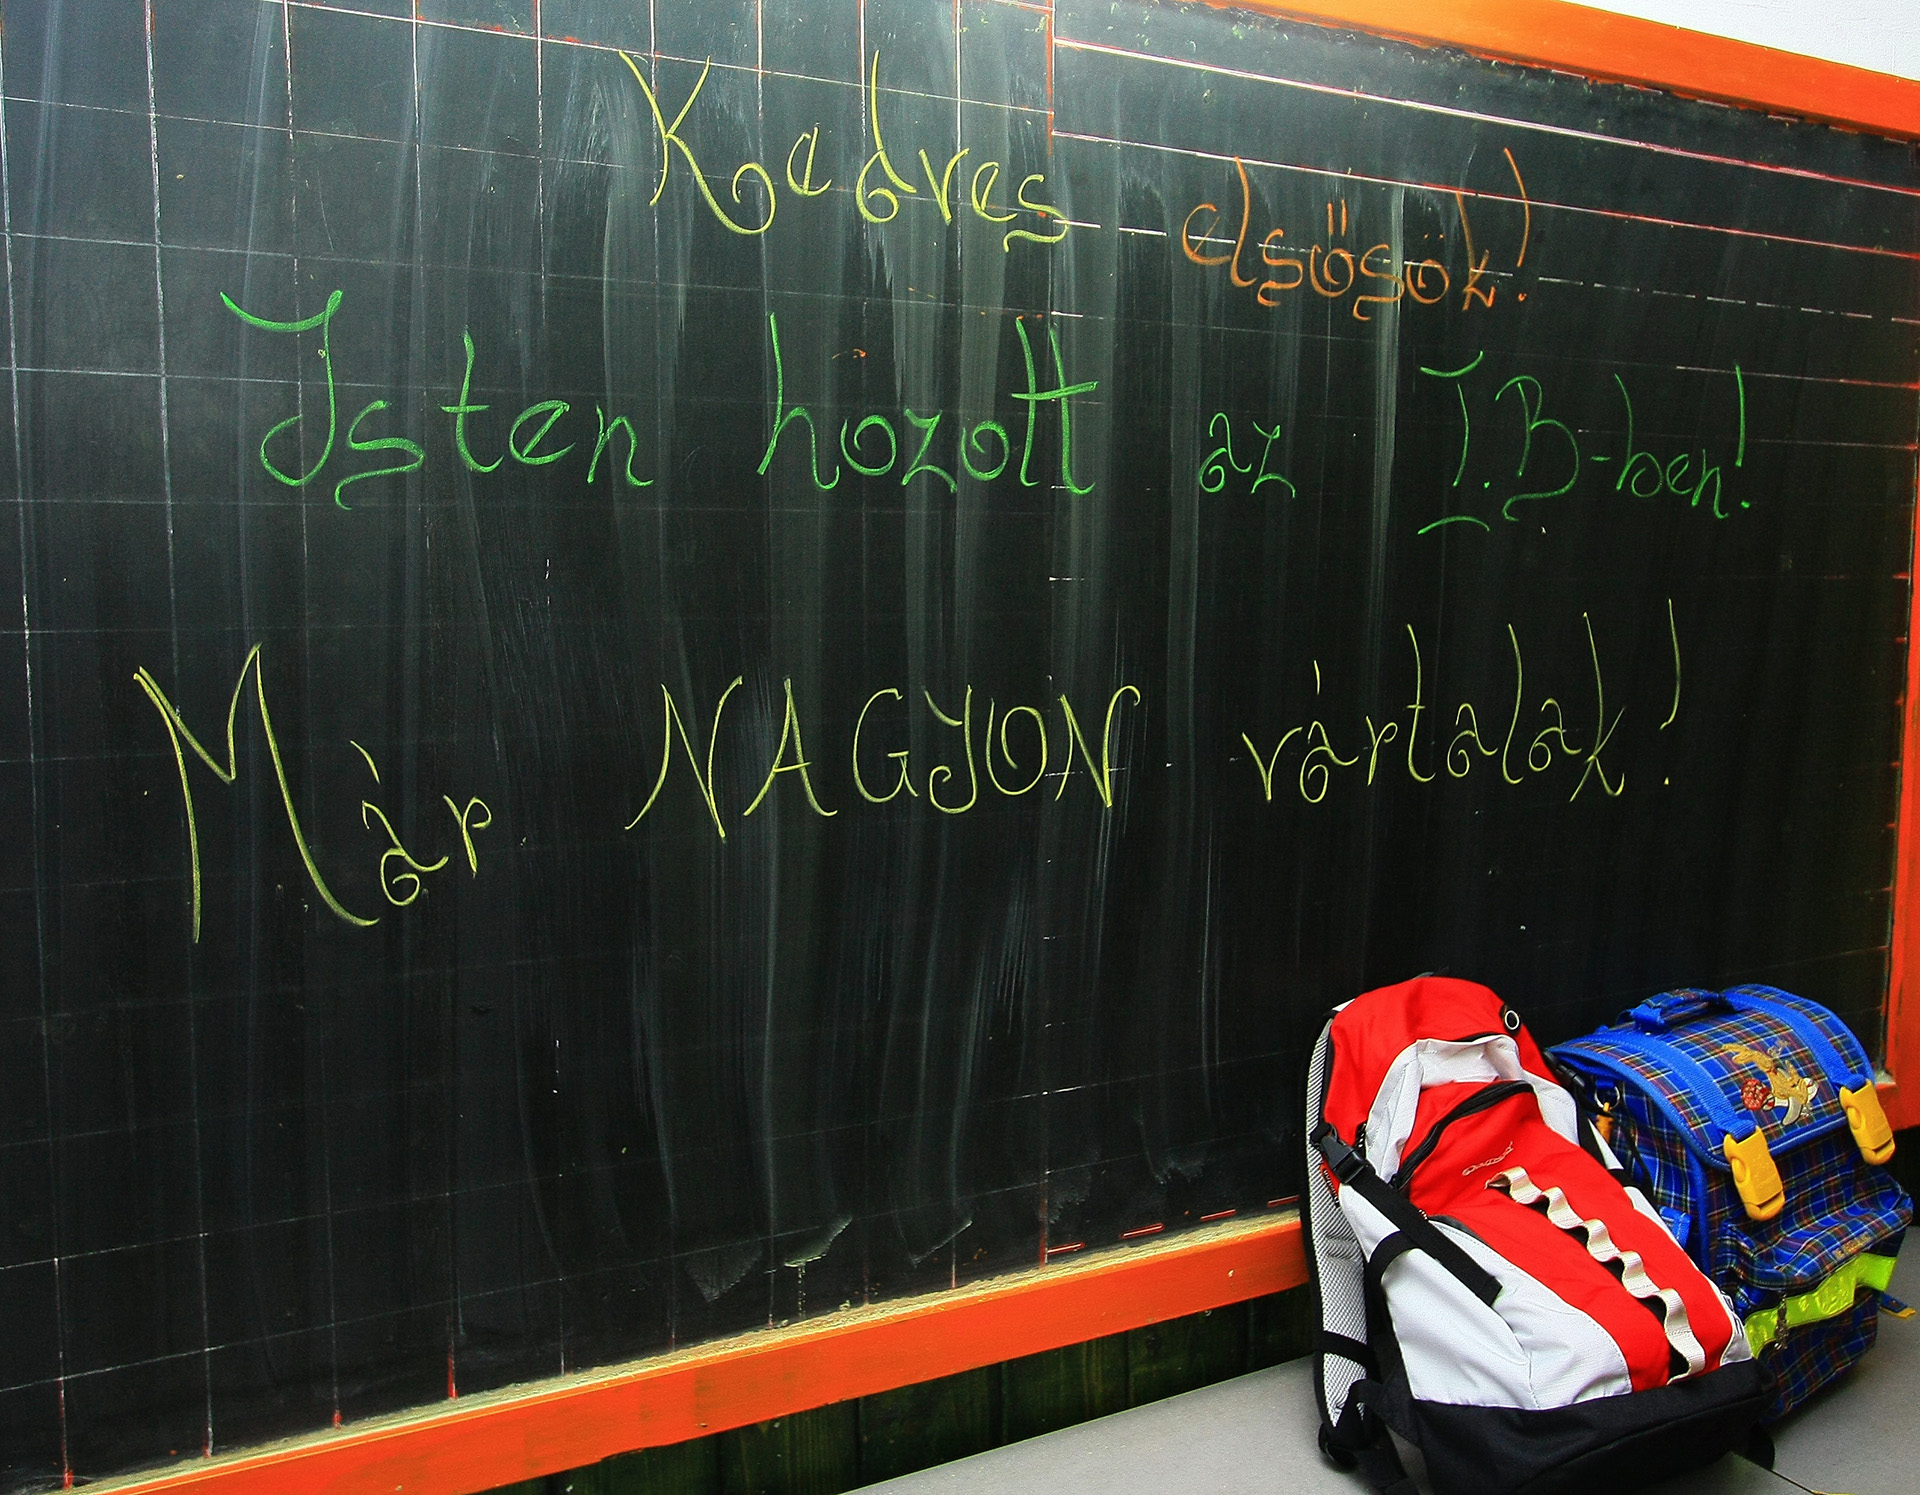 Kedves elsősök!
Isten hozott az I.B-ben!
Már NAGYON vártalak!